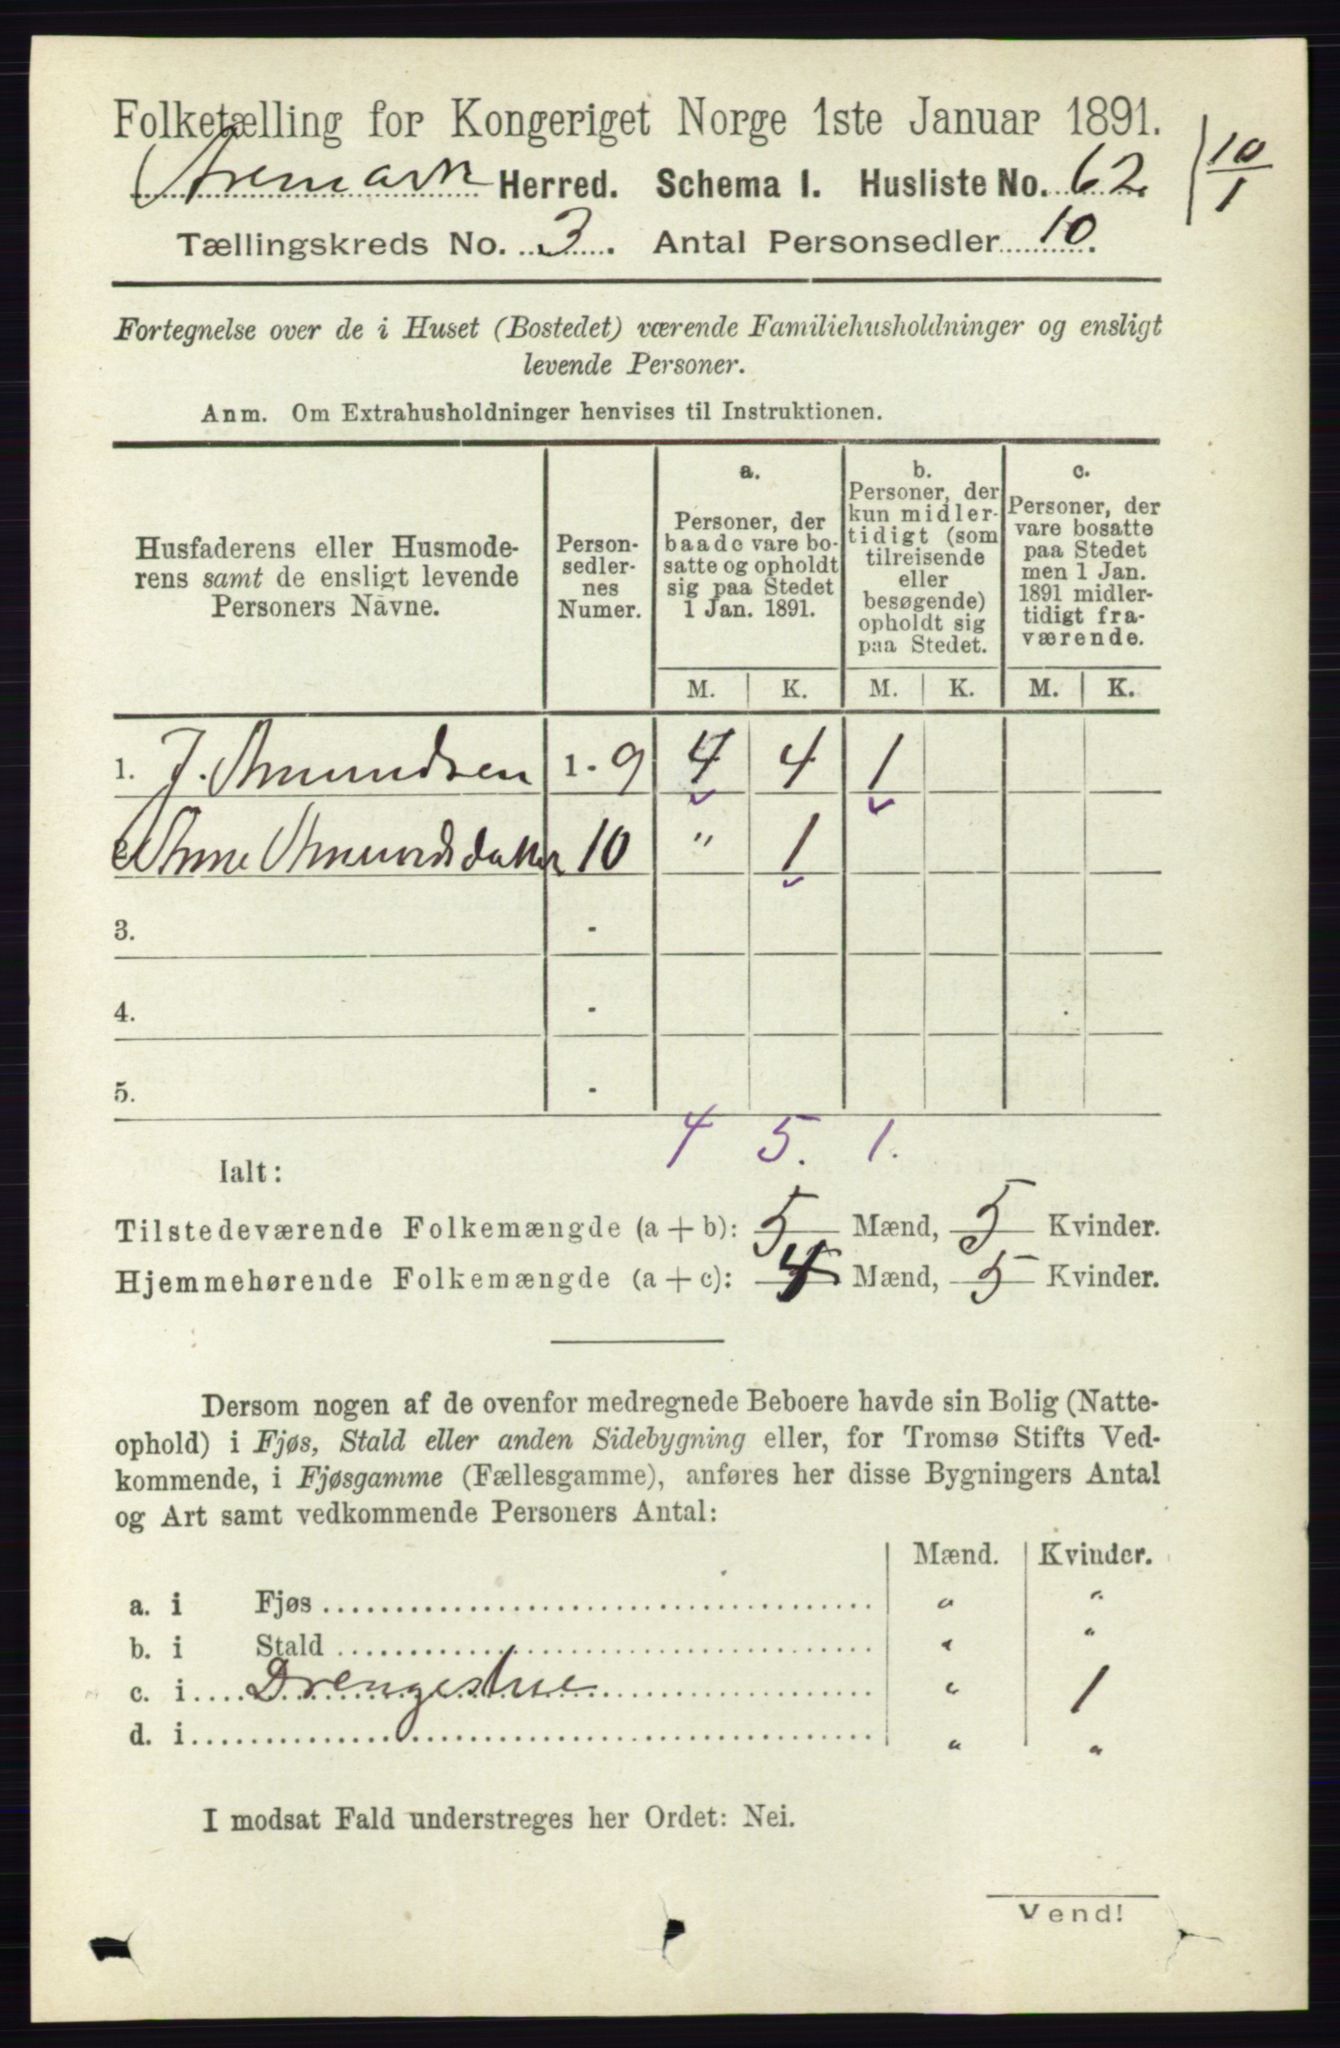 Folketælling for Kongeriget Norge 1ste Januar 1891.
Aremark Herred. Schema I. Husliste No. 62. 10/1
Tællingskreds No. 3. Antal Personsedler 10.
Fortegnelse over de i Huset (Bostedet) værende Familiehusholdninger og ensligt
levende Personer.
Anm. Om Extrahusholdninger henvises til Instruktionen.
Husfaderens eller Husmode-
rens samt de ensligt levende
Personers Navne.
Person-
sedler-
nes
Numer.
a.
Personer, der
baade vare bo-
satte og opholdt
sig paa Stedet
1 Jan. 1891.
b.
Personer, der
kun midler-
tidigt (som
tilreisende
eller
besøgende)
opholdt sig
paa Stedet.
c.
Personer, der
vare bosatte
paa Stedet
men 1 Jan.
1891 midler-
tidigt fra-
værende.
M. K. M. K. M. K.
1. J. Amundsen 1-9 4 4 1
2. Anne Amundsdatter 10 " 1
3. -
4. -
5. -
4 5. 1.
Ialt:
Tilstedeværende Folkemængde (a + b): 5 Mænd, 5 Kvinder.
Hjemmehørende Folkemængde (a + c): 4 Mænd, 5 Kvinder.
Dersom nogen af de ovenfor medregnede Beboere havde sin Bolig (Natte-
ophold) i Fjøs, Stald eller anden Sidebygning eller, for Tromsø Stifts Ved-
kommende, i Fjøsgamme (Fællesgamme), anføres her disse Bygningers Antal
og Art samt vedkommende Personers Antal:
Mænd. Kvinder.
a. i Fjøs " "
b. i Stald " "
c. i Drengestue " 1
d. i " "
I modsat Fald understreges her Ordet: Nei.
Vend!